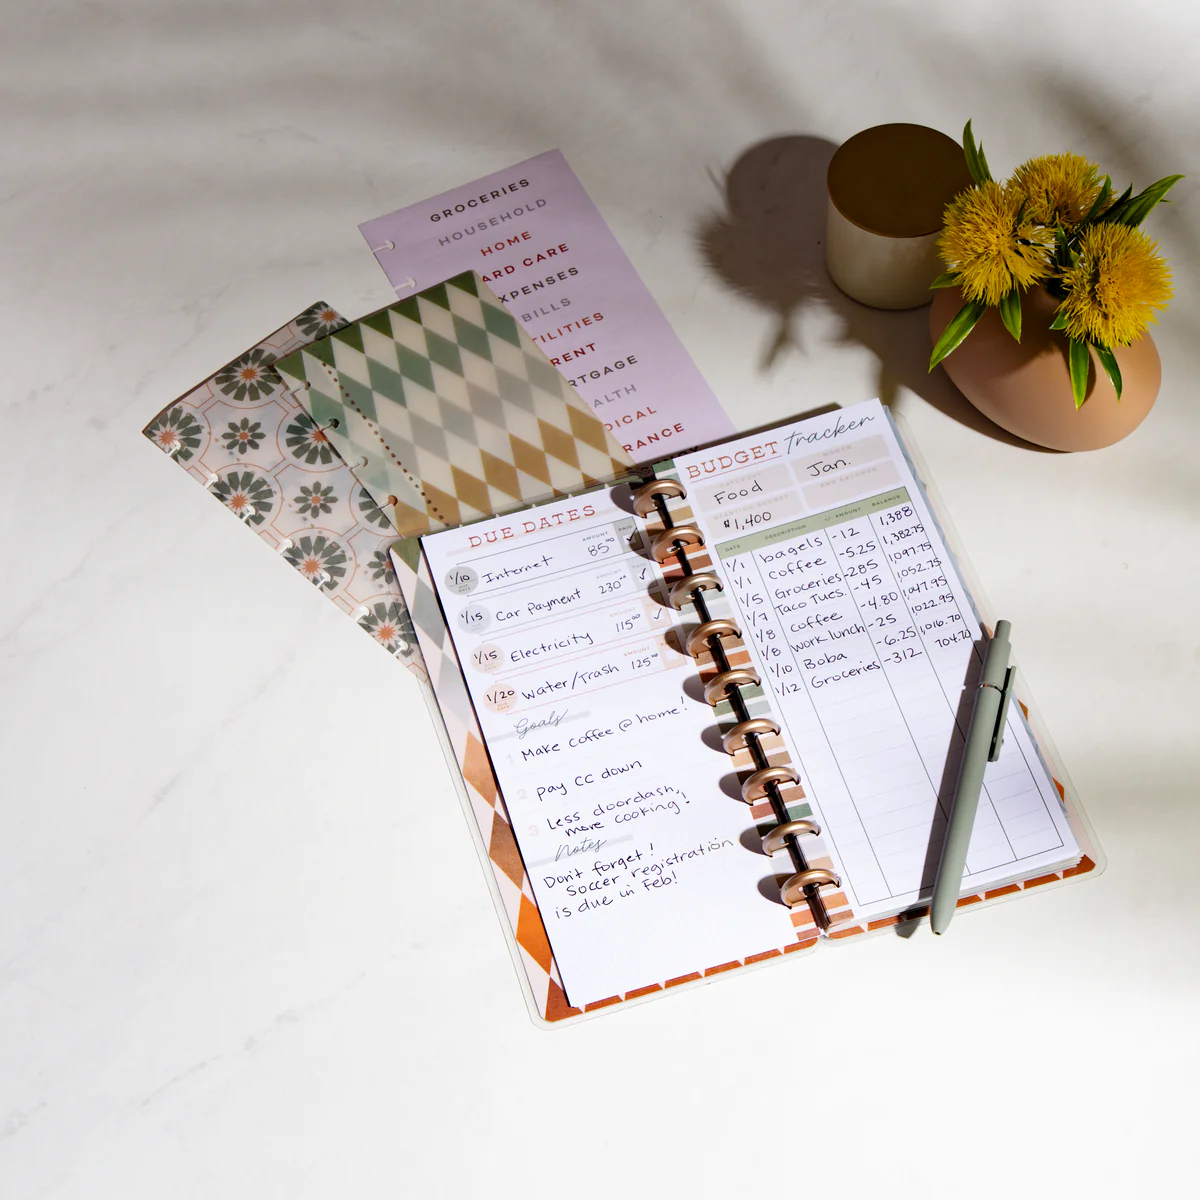 GROCERIES
HOUSEHOLD
HOME
ARD CARE
XPENSES
BILLS
TILITIES
RENT
RTGAGE
ALTH
DICAL
RANCE
DUE DATES
AMOUNT PAID
1/10 Internet 85⁰⁰ ✓
DUE DATE
AMOUNT
1/15 Car Payment 230⁰⁰ ✓
AMOUNT
1/15 Electricity 115⁰⁰ ✓
DUE DATE
AMOUNT
1/20 Water/Trash 125⁰⁰
DUE DATE
Goals
1 Make coffee @ home!
2 pay CC down
3 Less doordash,
more cooking!
Notes
Don't forget!
Soccer registration
is due in Feb!
BUDGET tracker
CATEGORY MONTH
Food Jan.
STARTING BUDGET END BALANCE
$1,400
DATE DESCRIPTION +/- AMOUNT BALANCE
1/1 bagels -12 1,388
1/1 coffee -5.25 1,382.75
1/5 Groceries -285 1,097.75
1/7 Taco Tues. -45 1,052.75
1/8 coffee -4.80 1,047.95
1/8 work lunch -25 1,022.95
1/10 Boba -6.25 1,016.70
1/12 Groceries -312 704.70